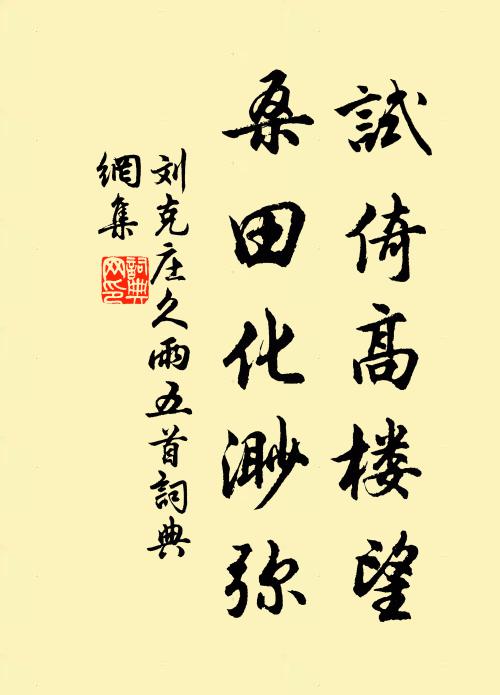 試倚高楼望
桑田化渺弥
刘克庄久雨五首詞典
網集
詞典
网印